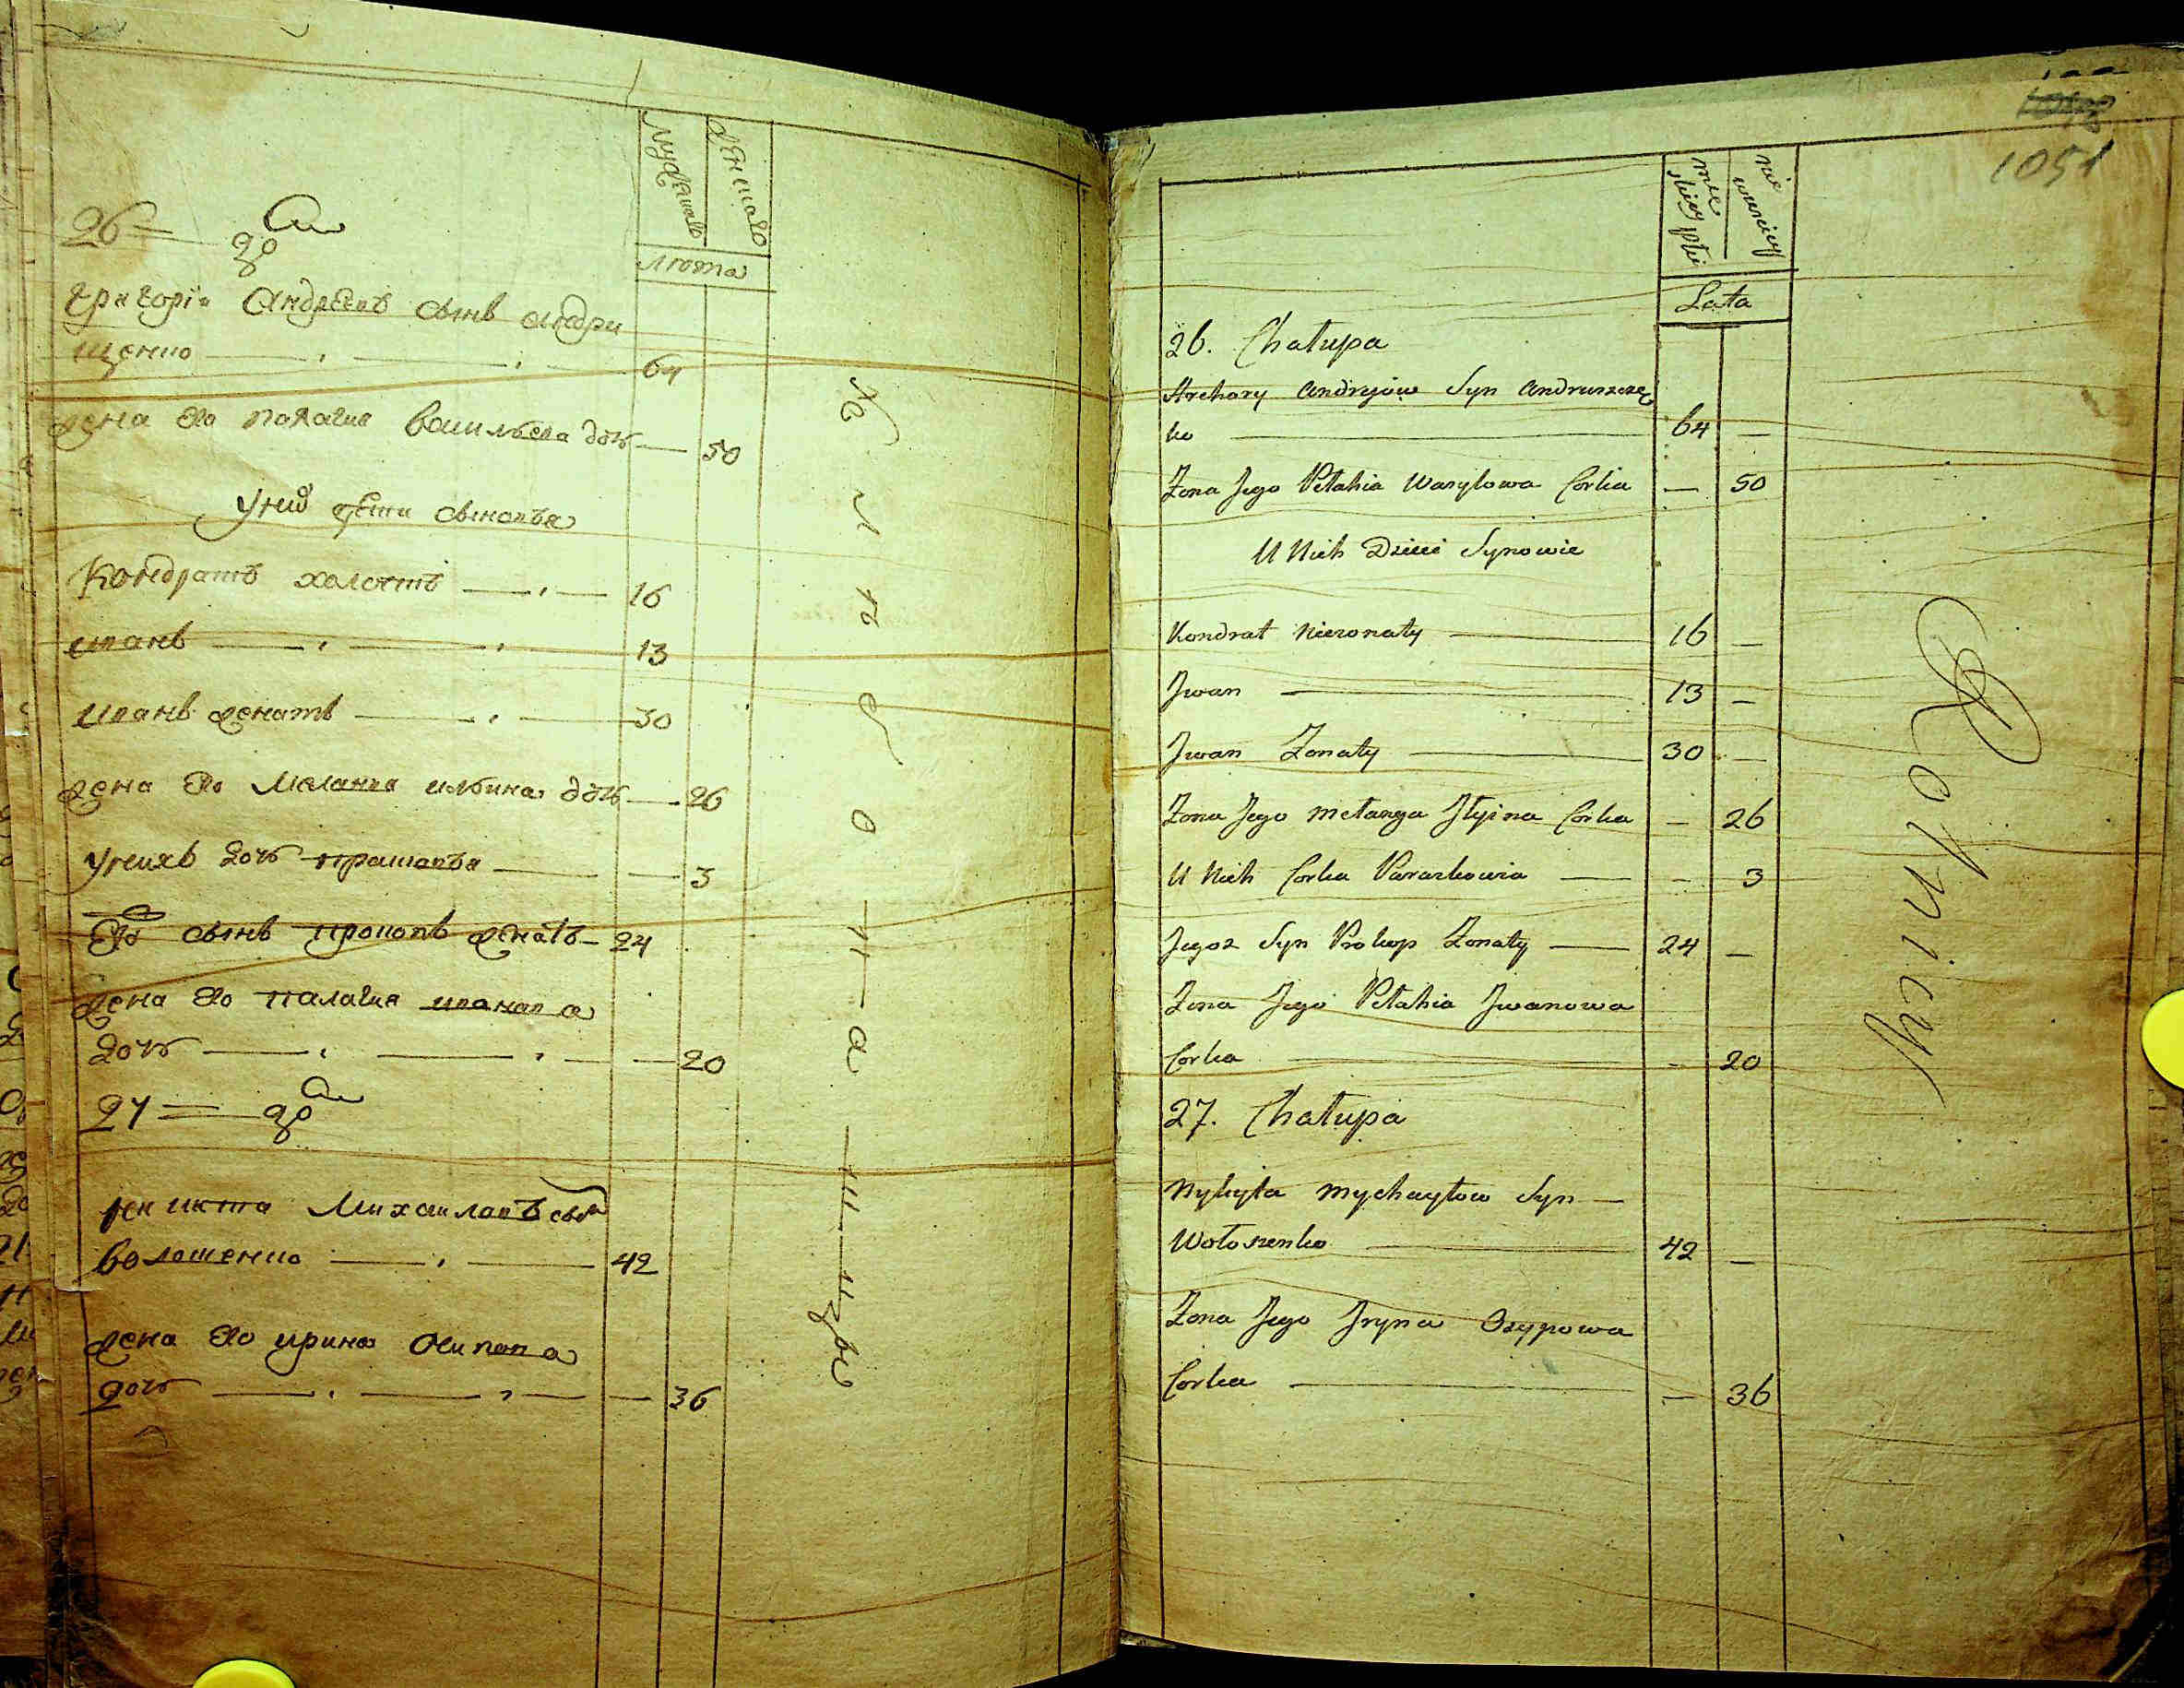 Мужеска
Женска
лѣта
26
Григорїи Андрѣевъ сынъ андру
щенко 64
жена его пелагия василѣва дочь 50
У них дети сыновья
Кондратъ холостъ 16
иванъ 13
иванъ женатъ 30
жена его Меланья ильина дочь 26
у нихъ дочь прасковья 3
Его сынъ прокопъ женатъ 24
жена его палагия иванова
дочь 20
27
никита Михаиловъ сынъ
волошенко 42
жена его ирина Осипова
дочь 36
Хлѣбопашцы
1051
męskiey płci
niewieściey
Lata
26. Chałupa
Hrehory Andryiow Syn Andruszczen
ko 64 —
Żona Jego Pełahia Wasylowa Corka — 50
U Nich Dzieci Synowie
Kondrat Nieżonaty 16 —
Jwan 13 —
Jwan Żonaty 30 —
Żona Jego Mełanya Jlyina Corka — 26
U Nich Corka Paraskowia — 3
Jegoż Syn Prokop Żonaty 24 —
Żona Jego Pełahia Jwanowa
Corka — 20
27. Chałupa
Nykyta Mychayłow Syn
Wołoszenko 42 —
Żona Jego Jryna Osypowa
Corka — 36
Rolnicy